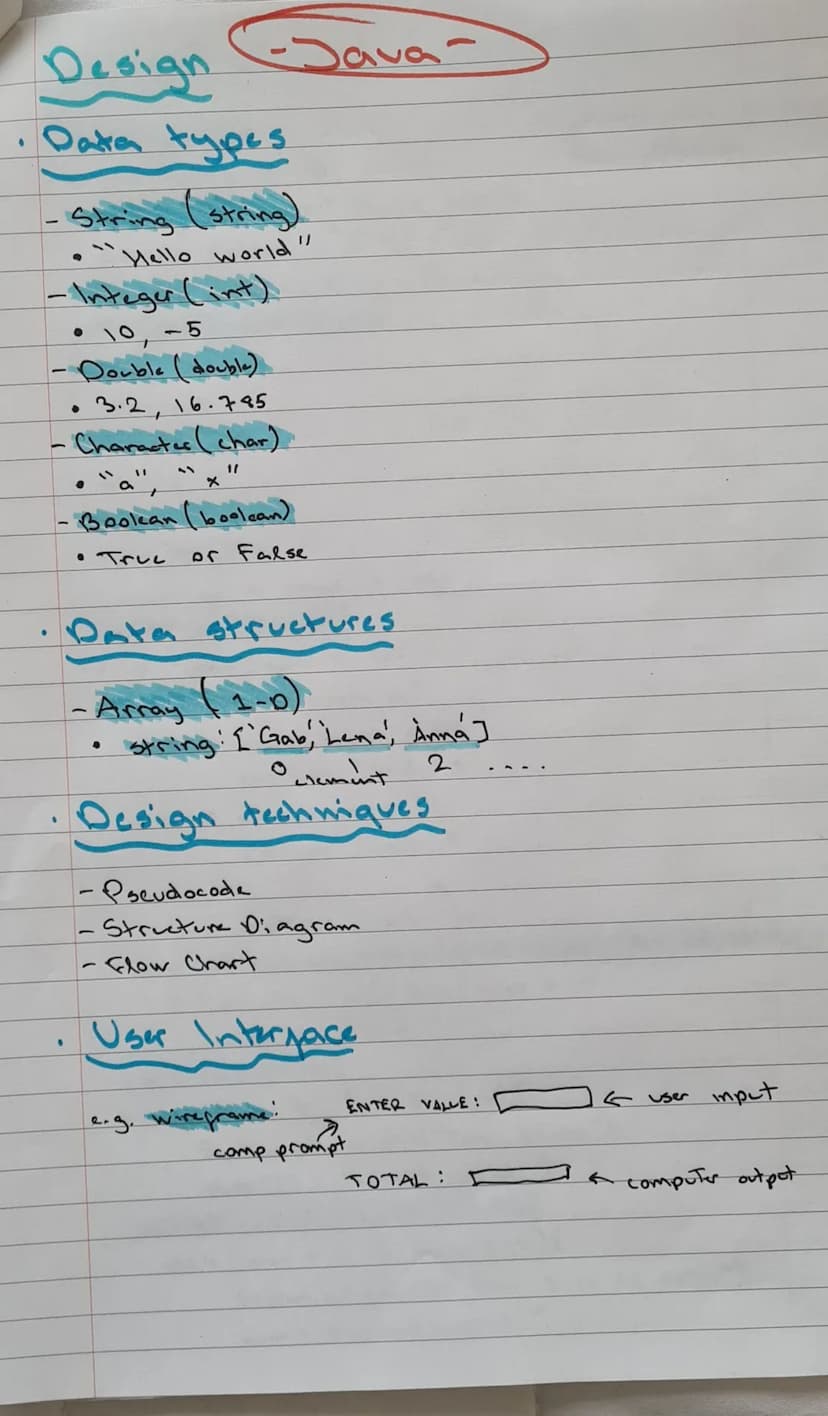 Design -Java-
• Data types
- String (string)
• "Hello world"
- Integer (int)
• 10, -5
- Double (double)
• 3.2, 16.785
- Character (char)
• "a", "x"
- Boolean (boolean)
• True or False
• Data structures
- Array (1-D)
• string: ['Gab', 'Lena', 'Anna']
0 1 2 ....
element
• Design techniques
- Pseudocode
- Structure Diagram
- Flow Chart
• User Interface
e.g. wireframe: ENTER VALUE: ← user input
comp prompt
TOTAL: ← computer output